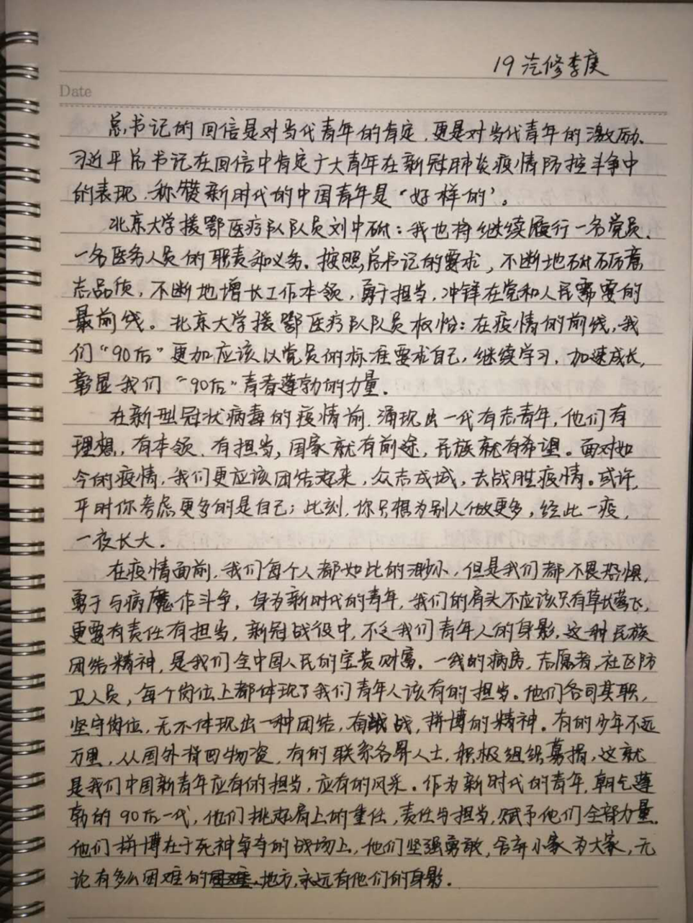 19汽修李庚
Date
总书记的回信是对当代青年的肯定，更是对当代青年的激励、
习近平总书记在回信中肯定广大青年在新冠肺炎疫情防控斗争中
的表现，称赞新时代的中国青年是“好样的”。
北京大学援鄂医疗队队员刘中砥：我也将继续履行一名党员、
一名医务人员的职责和义务。按照总书记的要求，不断地砥砺意
志品质，不断地增长工作本领，勇于担当，冲锋在党和人民需要的
最前线。北京大学援鄂医疗队队员权怡：在疫情的前线，我
们“90后”更加应该以党员的标准要求自己，继续学习，加速成长，
彰显我们“90后”青春蓬勃的力量。
在新型冠状病毒的疫情前，涌现出一代有志青年，他们有
理想，有本领，有担当，国家就有前途，民族就有希望。面对如
今的疫情，我们更应该团结起来，众志成城，去战胜疫情。或许，
平时你考虑更多的是自己；此刻，你只想为别人做更多，经此一疫，
一夜长大。
在疫情面前，我们每个人都如此的渺小，但是我们都不畏恐惧，
勇于与病魔作斗争，身为新时代的青年，我们的肩头不应该只有草长莺飞，
更要有责任有担当，新冠战役中，不乏我们青年人的身影，这种民族
团结精神，是我们全中国人民的宝贵财富。一线的病房，志愿者，社区防
卫人员，每个岗位上都体现了我们青年人该有的担当。他们各司其职，
坚守岗位，无不体现出一种团结，奋战，拼博的精神。有的少年不远
万里，从国外背回物资，有的联系各界人士，积极组织募捐，这就
是我们中国新青年应有的担当，应有的风采。作为新时代的青年，朝气蓬
勃的90后一代，他们挑起肩上的重任，责任与担当，赋予他们全部力量，
他们拼博在于死神争夺的战场上，他们坚强勇敢，舍弃小家为大家，无
论有多么困难的地方，永远有他们的身影。